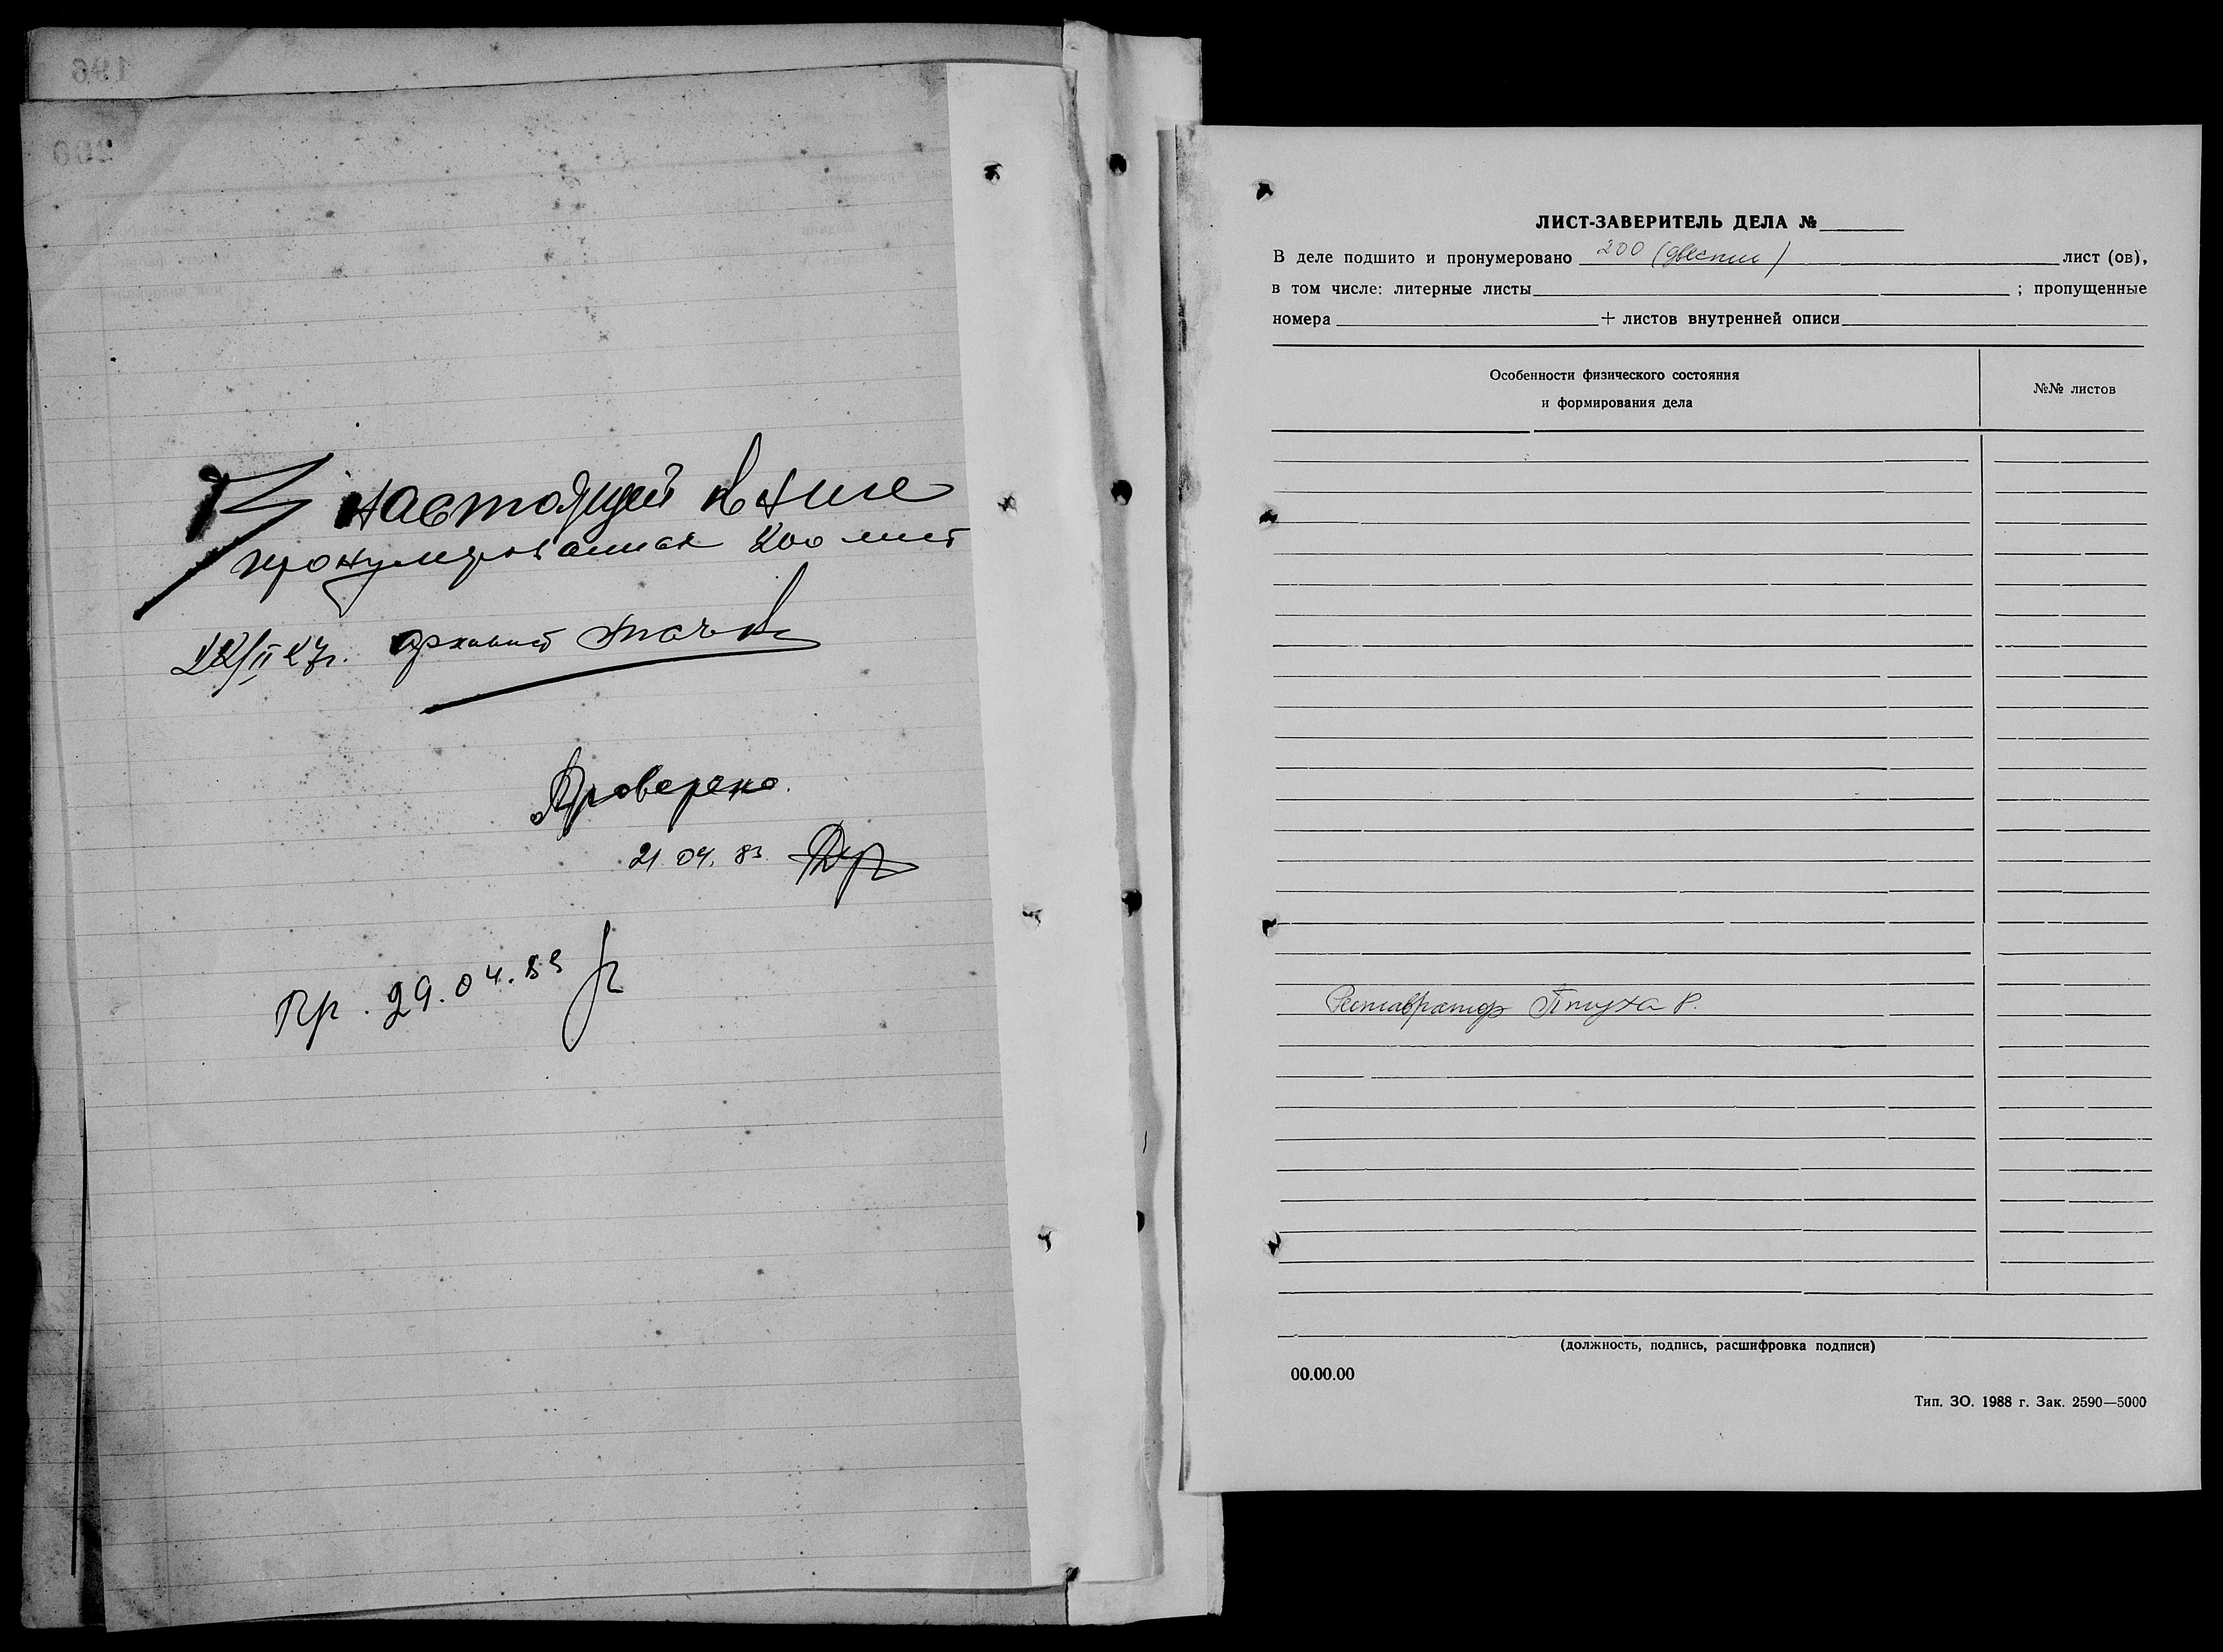 В настоящей книге
пронумерованных 200 лист
22/II 27г. архивист
Проверено.
21.04.83.
Пр. 29.04.83
ЛИСТ-ЗАВЕРИТЕЛЬ ДЕЛА №
В деле подшито и пронумеровано 200 (двести) лист (ов),
в том числе: литерные листы ; пропущенные
номера + листов внутренней описи
Особенности физического состояния
и формирования дела
№№ листов
Реставратор Птуха Р.
(должность, подпись, расшифровка подписи)
00.00.00
Тип. ЗО. 1988 г. Зак. 2590—5000